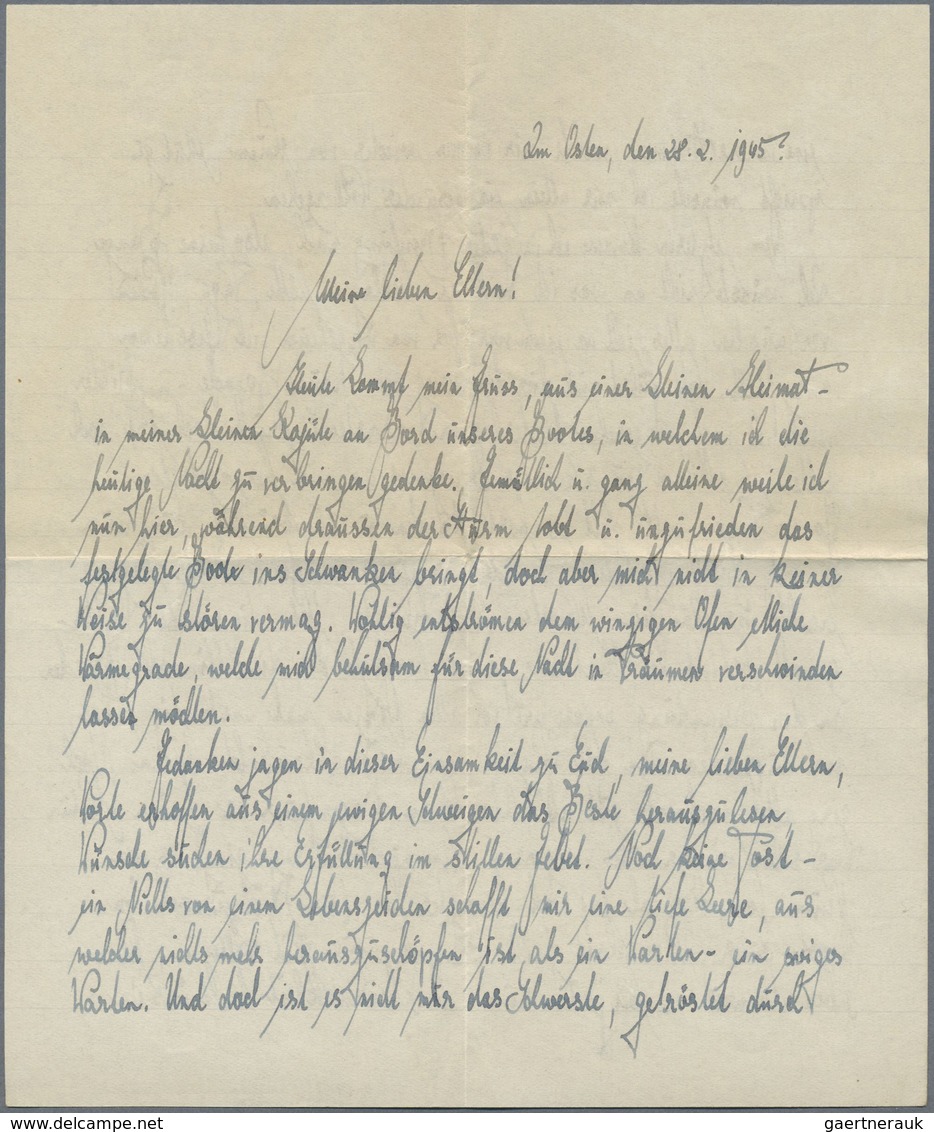 Im Osten, den 28. 2. 1945.
Meine lieben Eltern!
Heute kommt mein Gruss, aus einer kleinen Heimat -
in meiner kleinen Kajüte an Bord unseres Bootes, in welchem ich die
heutige Nacht zu verbringen gedenke. Gemütlich u. ganz alleine weile ich
nun hier, während draussen der Sturm tobt u. unzufrieden das
festgelegte Boot ins Schwanken bringt, doch aber mich nicht in keiner
Weise zu stören vermag. Wohlig entströmen dem winzigen Ofen etliche
Wärmegrade, welche mich behutsam für diese Nacht in Träumen verschwinden
lassen möchten.
Gedanken jagen in dieser Einsamkeit zu Euch, meine lieben Eltern,
Worte erhoffen aus einem ewigen Schweigen das Beste herauszulesen
Wünsche suchen ihre Erfüllung im stillen Gebet. Noch keine Post -
ein Nichts von einem Lebenszeichen schafft mir eine tiefe Leere, aus
welcher nichts mehr herauszuschöpfen ist als ein Warten - ein ewiges
Warten. Und doch ist es nicht mir das Schwerste, getröstet durch
gaertnerauk